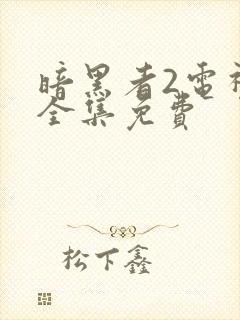 暗黑者2电视
全集免费
松下鑫